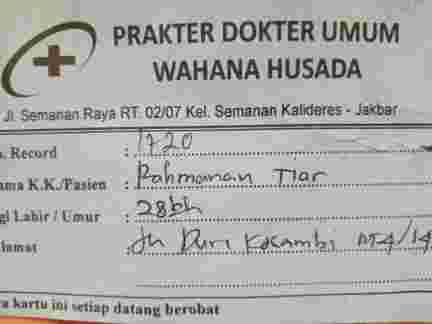 PRAKTER DOKTER UMUM
WAHANA HUSADA
Jl. Semanan Raya RT. 02/07 Kel. Semanan Kalideres - Jakbar
. Record : 1720
ama K.K./Pasien : Rahmanan Tiar
gl Lahir / Umur : 28bh
lamat : Jln Duri Kosambi RT4/14
a kartu ini setiap datang berobat